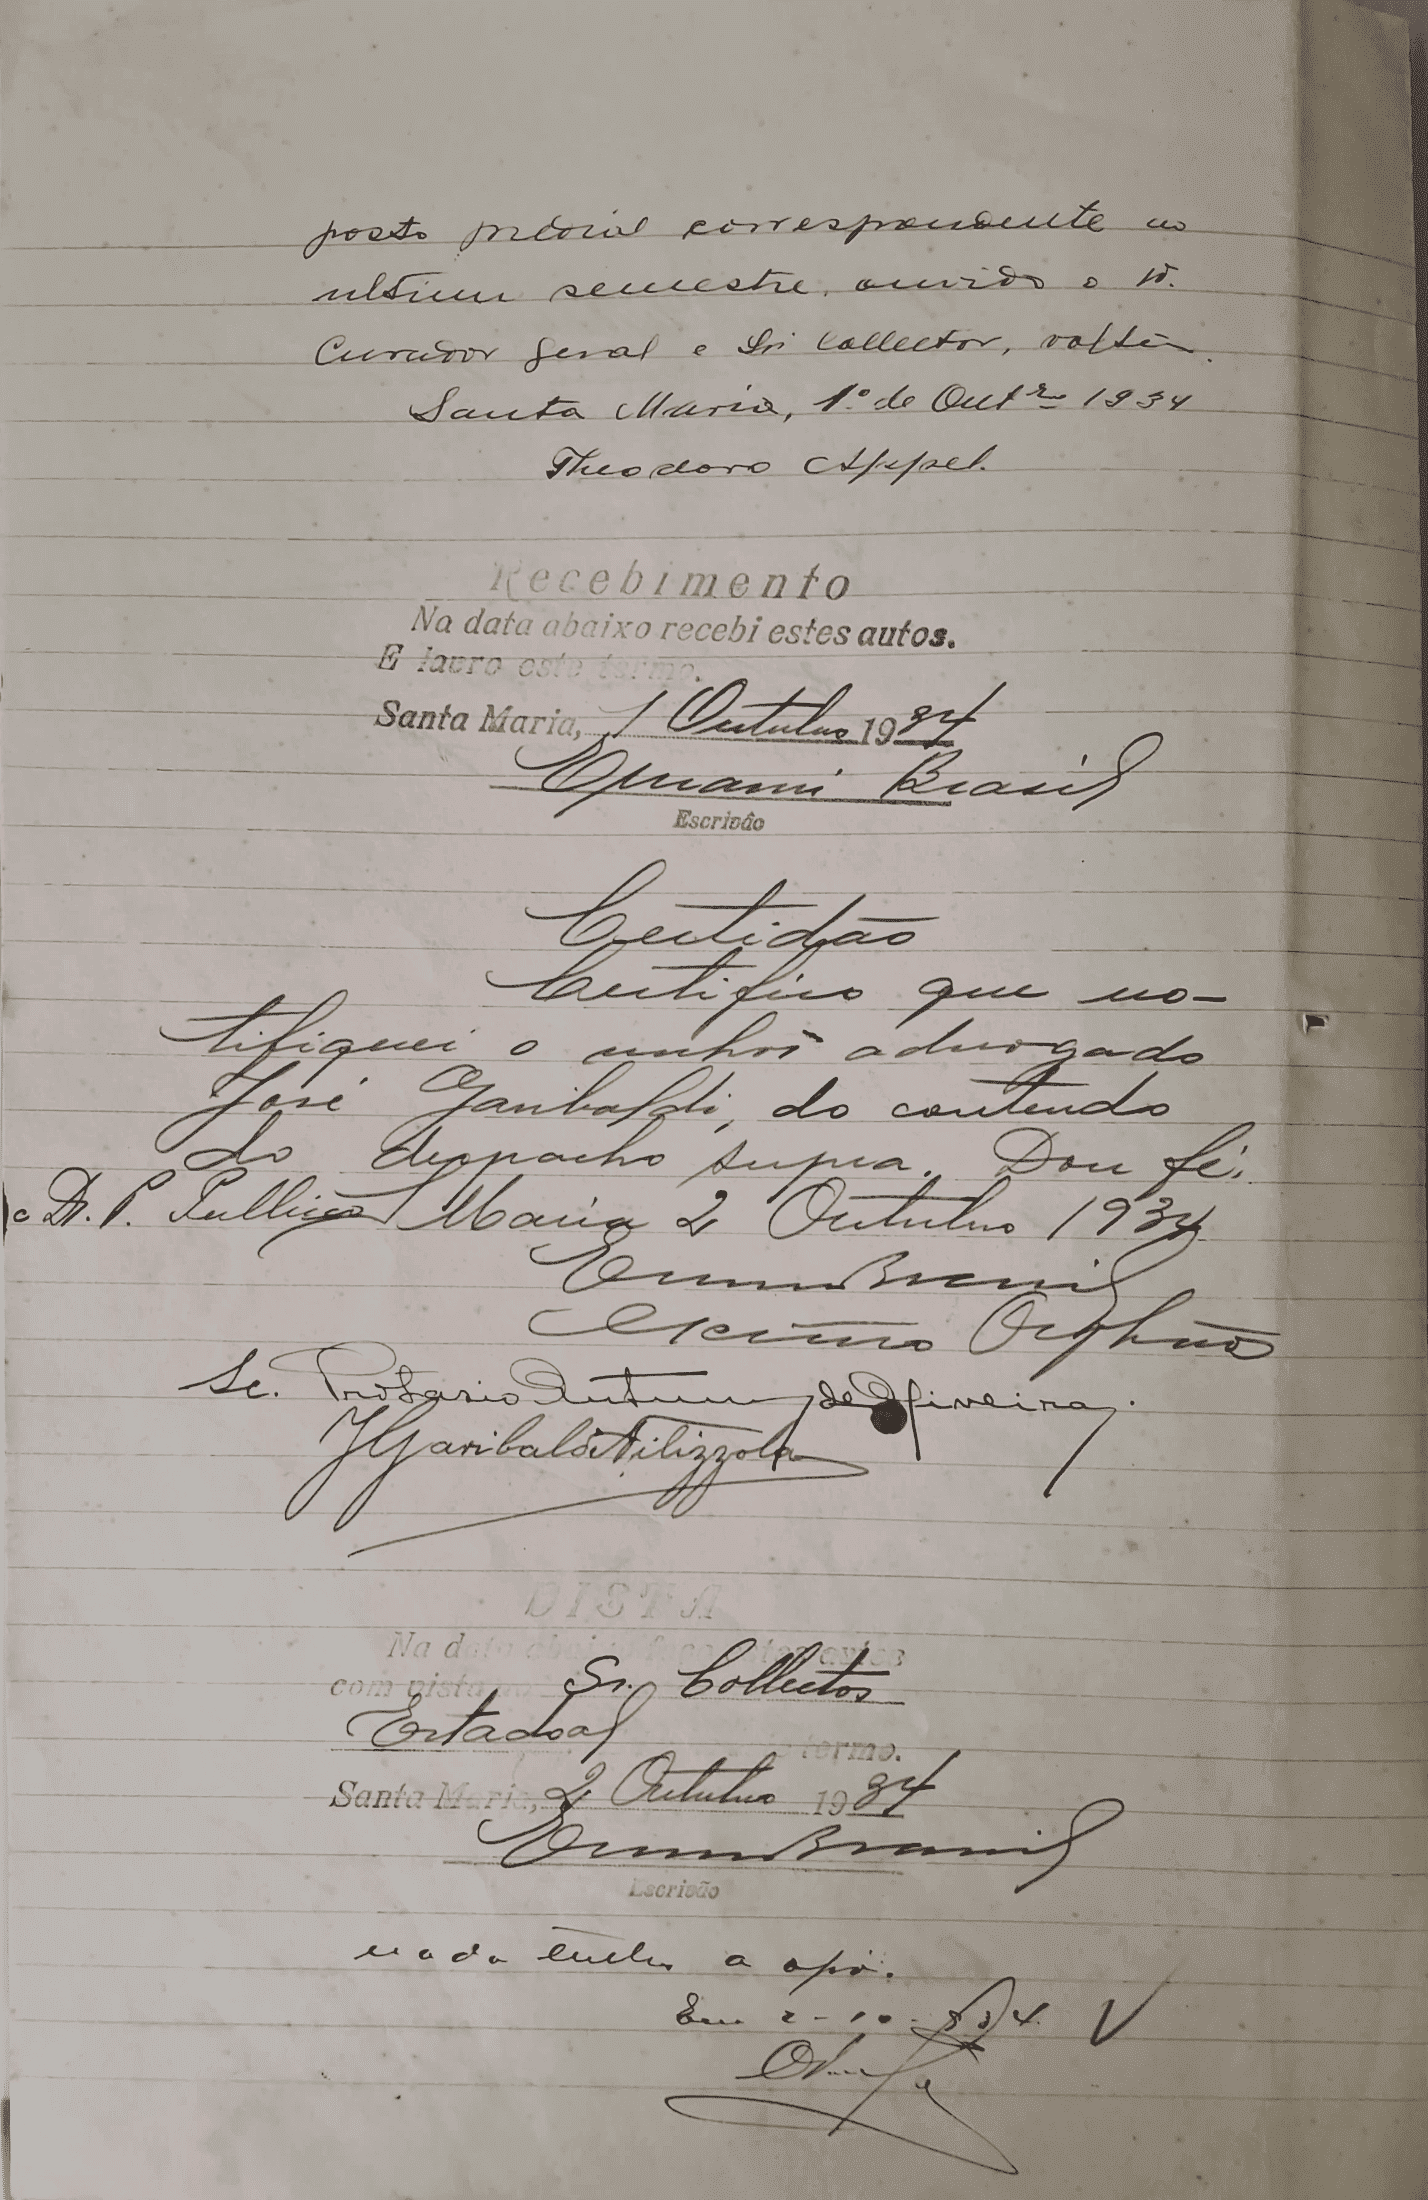 posto predial correspondente ao
ultimo semestre, ouvido o Dr.
Curador Geral e Sr Collector, voltem.
Santa Maria, 1º de Outrº 1934
Theodoro Appel.
Recebimento
Na data abaixo recebi estes autos.
E lavro este termo.
Santa Maria, 1 Outubro 1934
Ernani Brasil
Escrivão
Certidão
Certifico que no-
tifiquei o senhor advogado
José Garibaldi, do conteudo
do despacho supra. Dou fé.
e Dr. P. Publico Maria 2 Outubro 1934
Ernani Brasil
Orphãos
Sc. Protasio Antunes de Oliveira.
JGaribaldi Filizzola
VISTA
Na data abaixo faço estes autos
com vista ao Sr. Collector
Estadoal
termo.
Santa Maria, 2 Outubro 1934
Ernani Brasil
Escrivão
nada tenho a opôr.
Em 2-10-934.